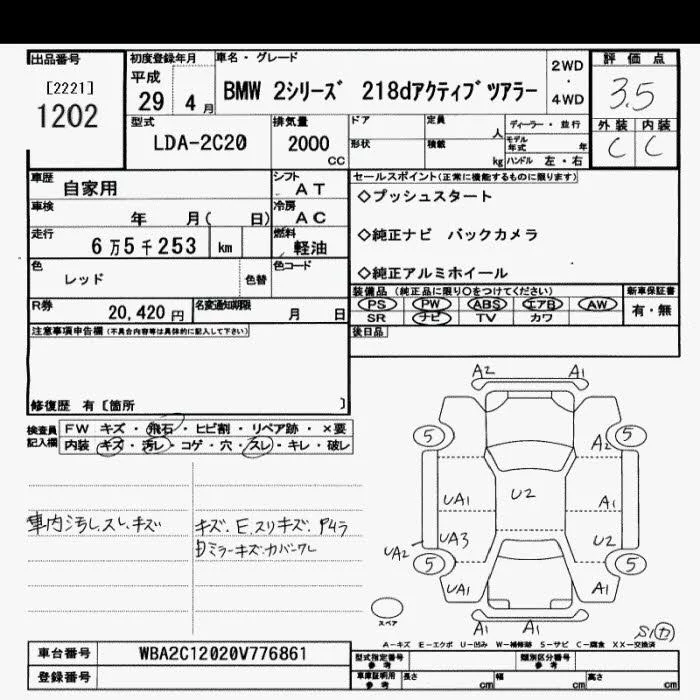 出品番号 初度登録年月 車名・グレード 2WD・4WD 評価点
[2221] 1202 平成 29 4月 BMW 2シリーズ 218dアクティブツアラー 3.5
型式 排気量 ドア 定員 人 ディーラー・並行 外装 内装
LDA-2C20 2000 CC 形状 積載 kg モデル年式 年 ハンドル 左・右 C C
車歴 自家用 シフト AT セールスポイント(正常に機能するものに限ります)
◇プッシュスタート
車検 年 月( 日) 冷房 AC
走行 6万5千253 km 燃料 軽油 ◇純正ナビ バックカメラ
色 レッド 色替 色コード ◇純正アルミホイール
装備品(純正品に限り○をつけてください) 新車保証書
PS PW ABS エアB AW 有・無
R券 20,420円 名変通知期限 月 日 SR ナビ TV カワ
注意事項申告欄(不具合内容等は具体的に記入して下さい) 後日品
修復歴 有〔箇所 〕
検査員記入欄 FW キズ・飛石・ヒビ割・リペア跡・×要
内装 キズ・汚レ・コゲ・穴・スレ・キレ・破レ
車内汚レスレ、キズ キズ、E、スリキズ、P4ラ
Dミラーキズ、カバーワレ
A2 A1
5 5
A2
UA1 U2 A1
UA3 U2
UA2 5 5
UA1 A1
A1 A1
スペア
A-キズ E-エクボ U-凹み W-補修跡 S-サビ C-腐食 XX-交換済
車台番号 WBA2C12020V776861 型式指定番号 参考 類別区分番号 参考
登録番号 車庫証明用 参考 長さ cm 幅 cm 高さ cm